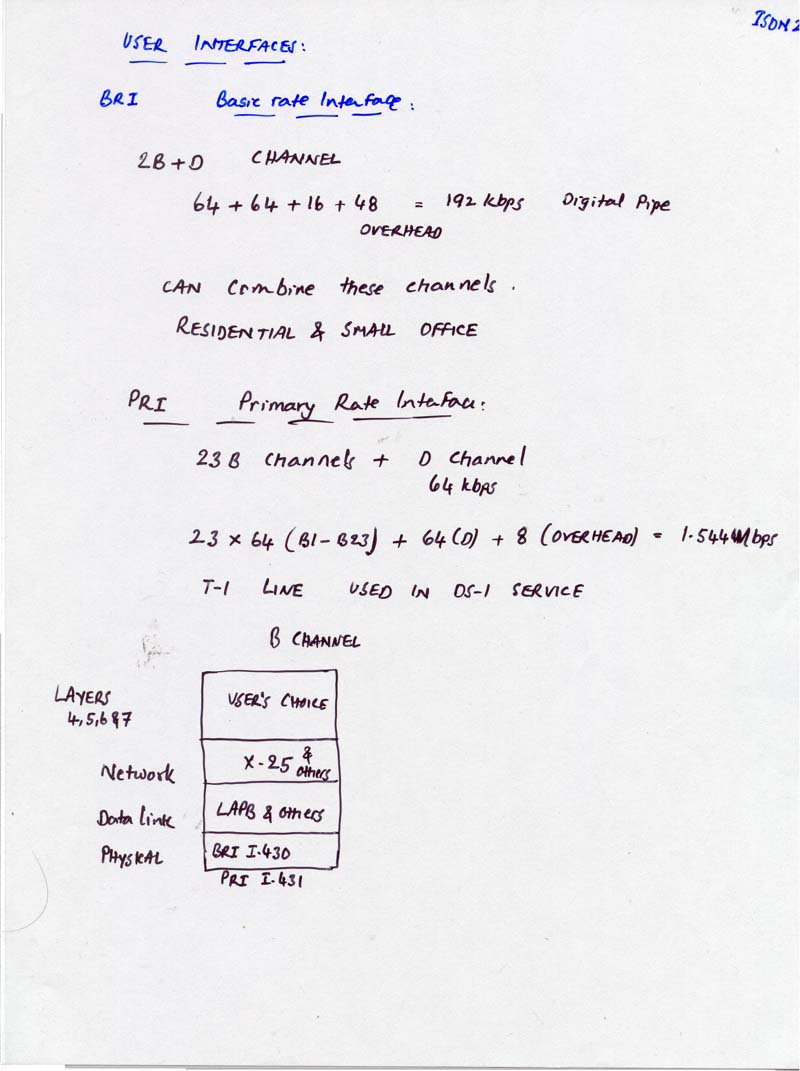 ISDN 2
USER INTERFACES:
BRI Basic rate Interface:
2B+D CHANNEL
64 + 64 + 16 + 48 = 192 kbps Digital Pipe
OVERHEAD
CAN Combine these channels.
RESIDENTIAL & SMALL OFFICE
PRI Primary Rate Interface:
23 B Channels + D Channel
64 kbps
23 × 64 (B1-B23) + 64(D) + 8 (OVERHEAD) = 1.544 Mbps
T-1 LINE USED IN DS-1 SERVICE
B CHANNEL
LAYERS
4,5,6&7
USER'S CHOICE
Network X-25 & others
Data link LAPB & others
PHYSICAL BRI I.430
PRI I.431